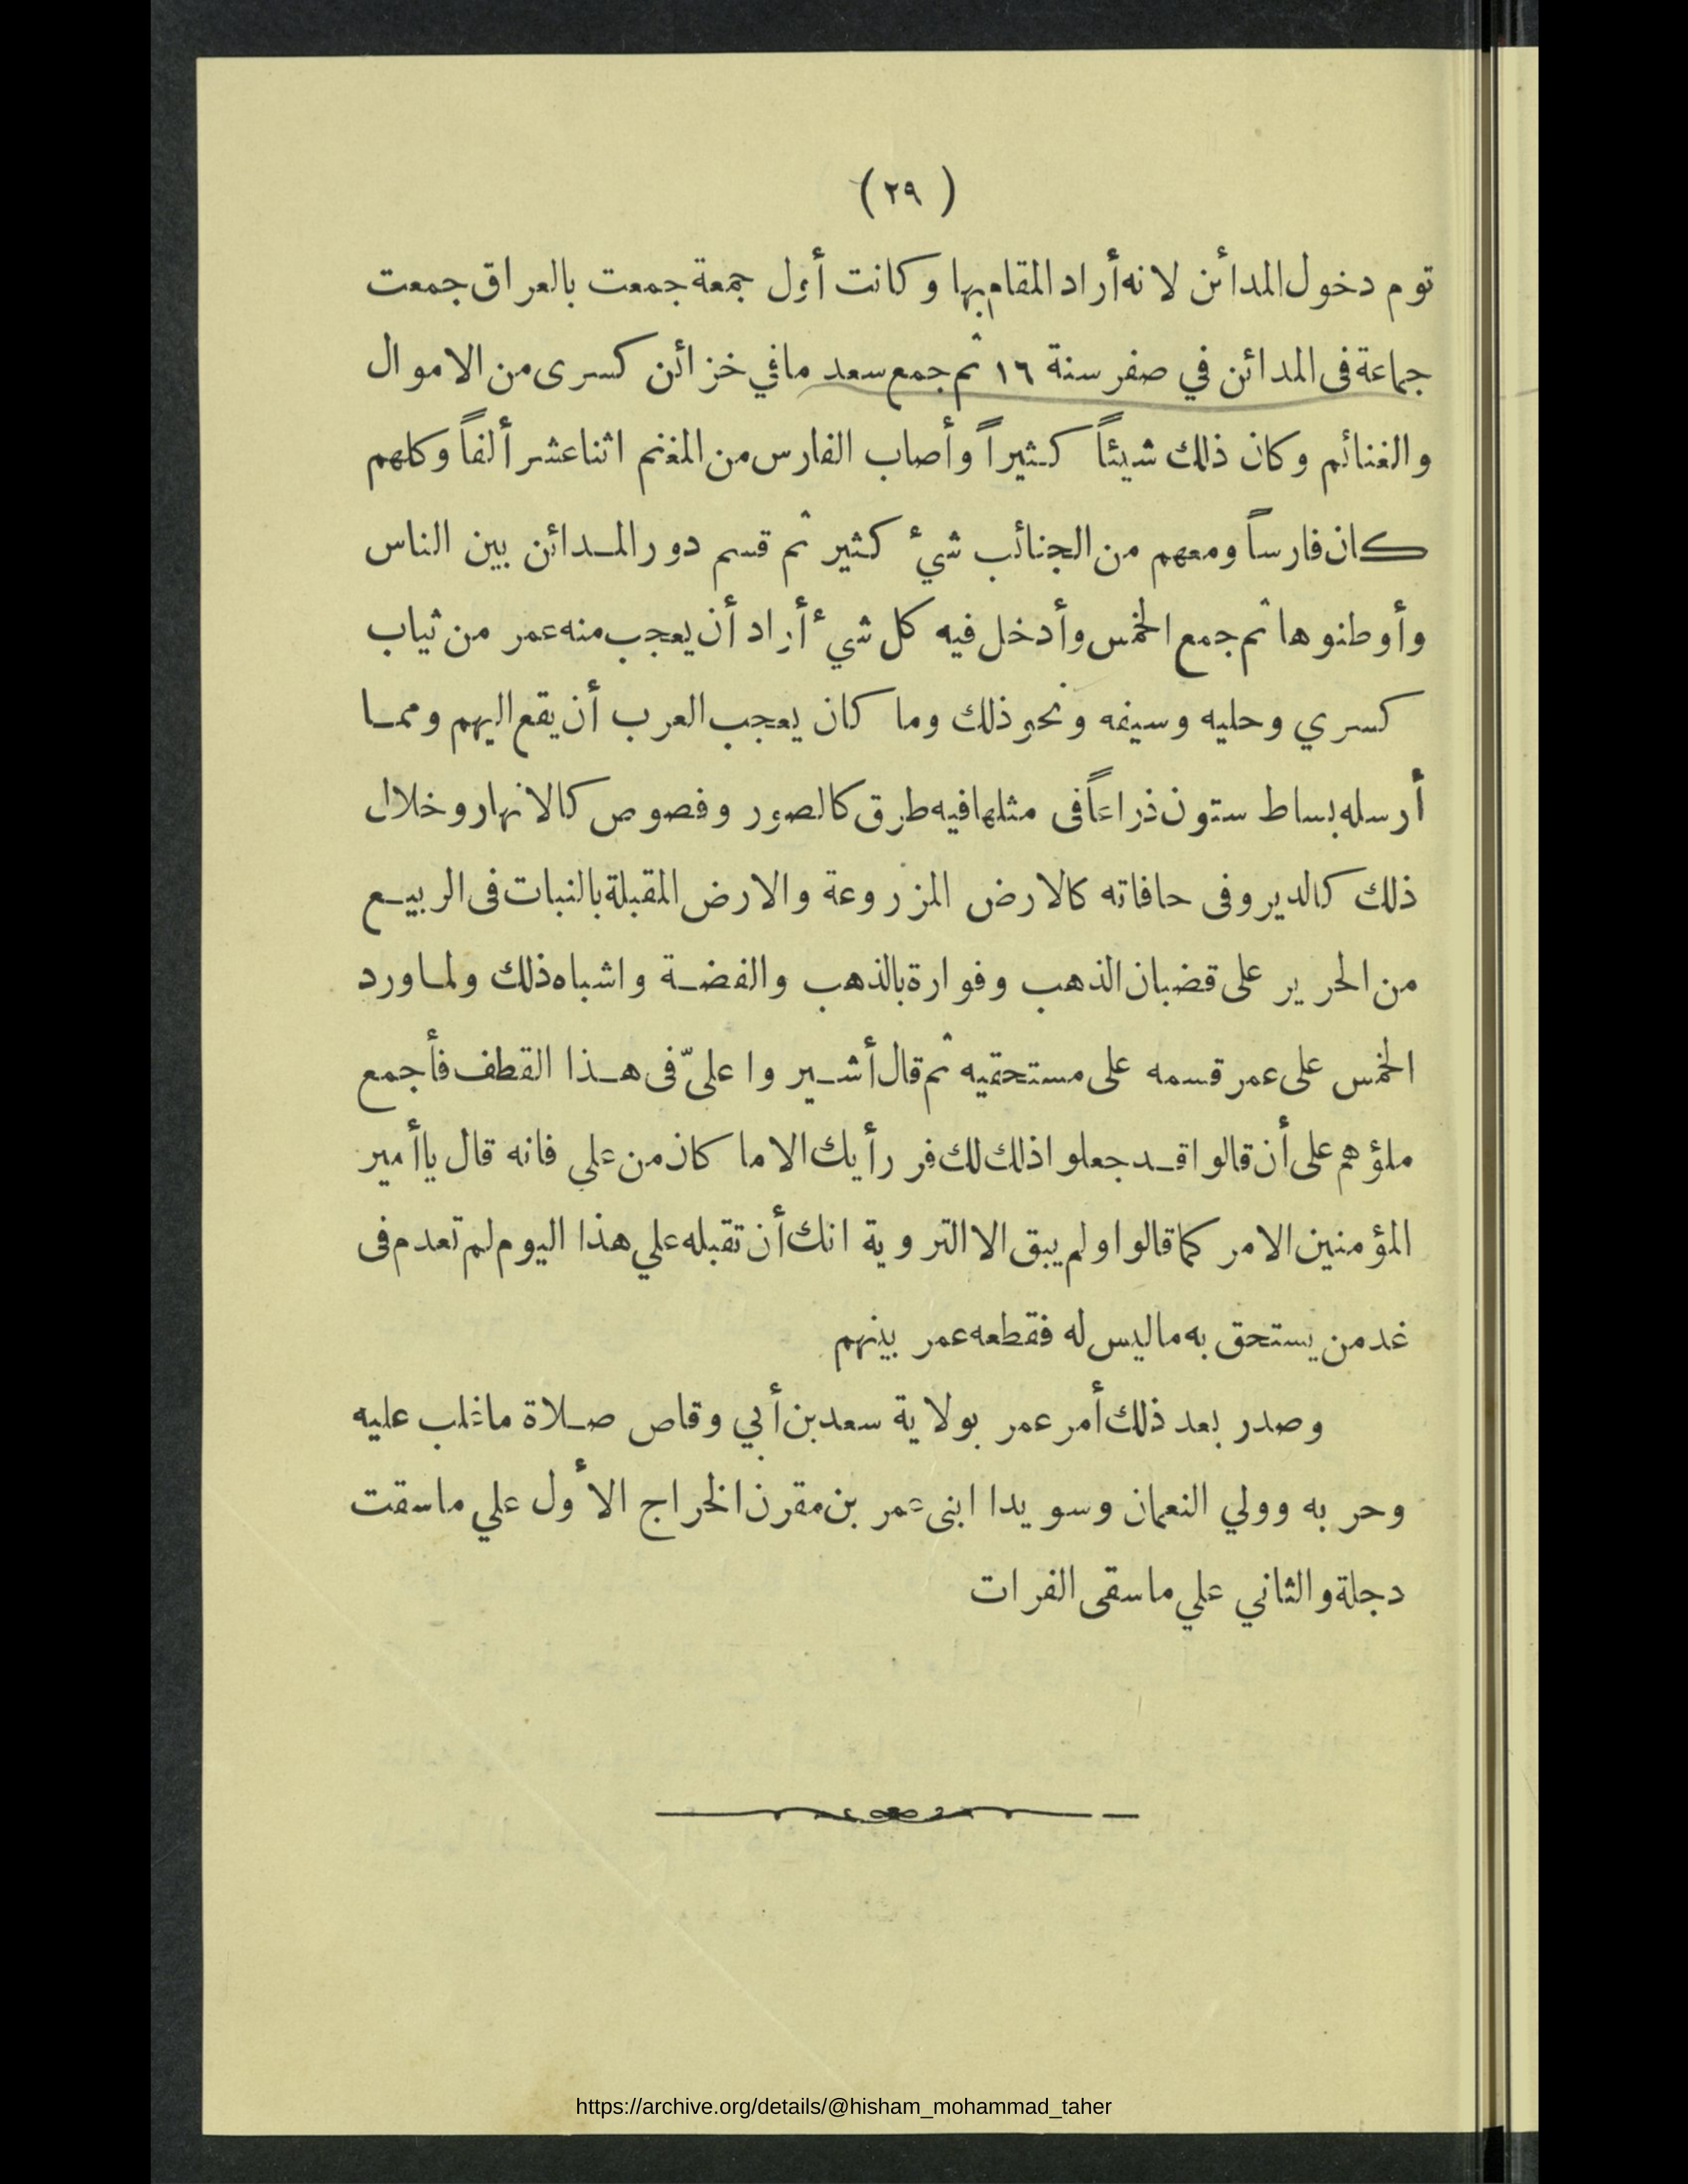 ( ٢٩ )
توم دخول المدائن لانه أراد المقام بها وكانت أول جمعة جمعت بالعراق جمعت
جماعة فى المدائن في صفر سنة ١٦ ثم جمع سعد مافي خزائن كسرى من الاموال
والغنائم وكان ذلك شيئاً كثيراً وأصاب الفارس من المغنم اثنا عشر ألفاً وكلهم
كان فارساً ومعهم من الجنائب شيء كثير ثم قسم دور المدائن بين الناس
وأوطنوها ثم جمع الخمس وأدخل فيه كل شيء أراد أن يعجب منه عمر من ثياب
كسري وحليه وسيفه ونحو ذلك وما كان يعجب العرب أن يقع اليهم ومما
أرسله بساط ستون ذراعاً فى مثلها فيه طرق كالصور وفصوص كالانهار وخلال
ذلك كالدير وفى حافاته كالارض المزروعة والارض المقبلة بالنبات فى الربيع
من الحرير على قضبان الذهب وفوارة بالذهب والفضة واشباه ذلك ولما ورد
الخمس على عمر قسمه على مستحقيه ثم قال أشيروا علىّ فى هذا القطف فأجمع
ملؤهم على أن قالوا قد جعلوا ذلك لك فر رأيك الا ما كان من علي فانه قال يا أمير
المؤمنين الامر كما قالوا ولم يبق الا التروية انك أن تقبله علي هذا اليوم لم تعدم فى
غد من يستحق به ما ليس له فقطعه عمر بينهم
وصدر بعد ذلك أمر عمر بولاية سعد بن أبي وقاص صلاة ماغلب عليه
وحربه وولي النعمان وسويدا ابنى عمر بن مقرن الخراج الأول علي ماسقت
دجلة والثاني علي ماسقى الفرات
https://archive.org/details/@hisham_mohammad_taher